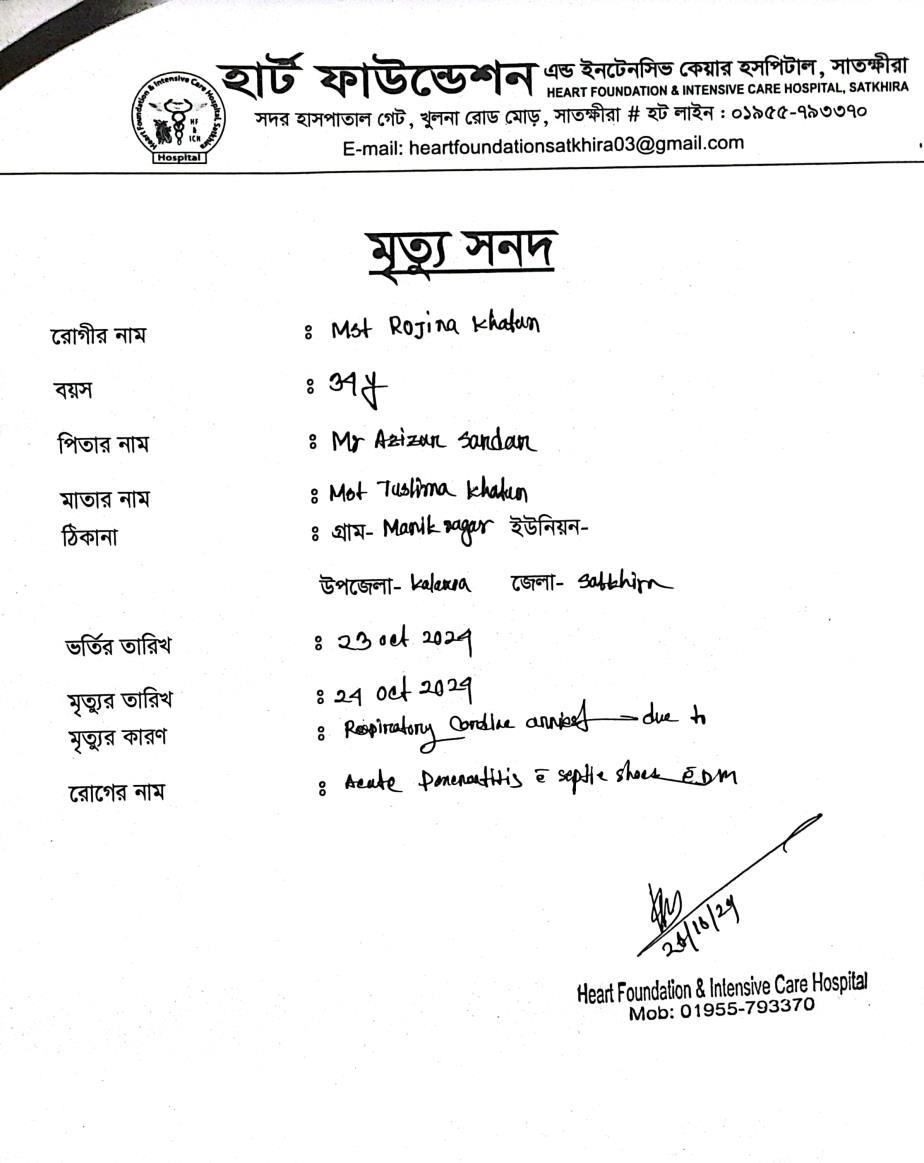 হার্ট ফাউন্ডেশন এন্ড ইনটেনসিভ কেয়ার হসপিটাল, সাতক্ষীরা
HEART FOUNDATION & INTENSIVE CARE HOSPITAL, SATKHIRA
সদর হাসপাতাল গেট, খুলনা রোড মোড়, সাতক্ষীরা # হট লাইন : ০১৯৫৫-৭৯৩৩৭০
E-mail: heartfoundationsatkhira03@gmail.com
Heart Foundation & Intensive Care Hospital, Satkhira
HF & ICH
Hospital
মৃত্যু সনদ
রোগীর নাম : Mst Rojina Khatun
বয়স : ৩৭ y
পিতার নাম : Mr Azizur Sardar
মাতার নাম : Mst Taslima Khatun
ঠিকানা : গ্রাম- Manik nagar ইউনিয়ন-
উপজেলা- Kalaroa জেলা- Satkhira
ভর্তির তারিখ : 23 oct 2024
মৃত্যুর তারিখ : 24 oct 2024
মৃত্যুর কারণ : Respiratory Cardiac arrest due to
রোগের নাম : Acute Pancreatitis c̄ septic shock c̄ DM
Heart Foundation & Intensive Care Hospital
Mob: 01955-793370